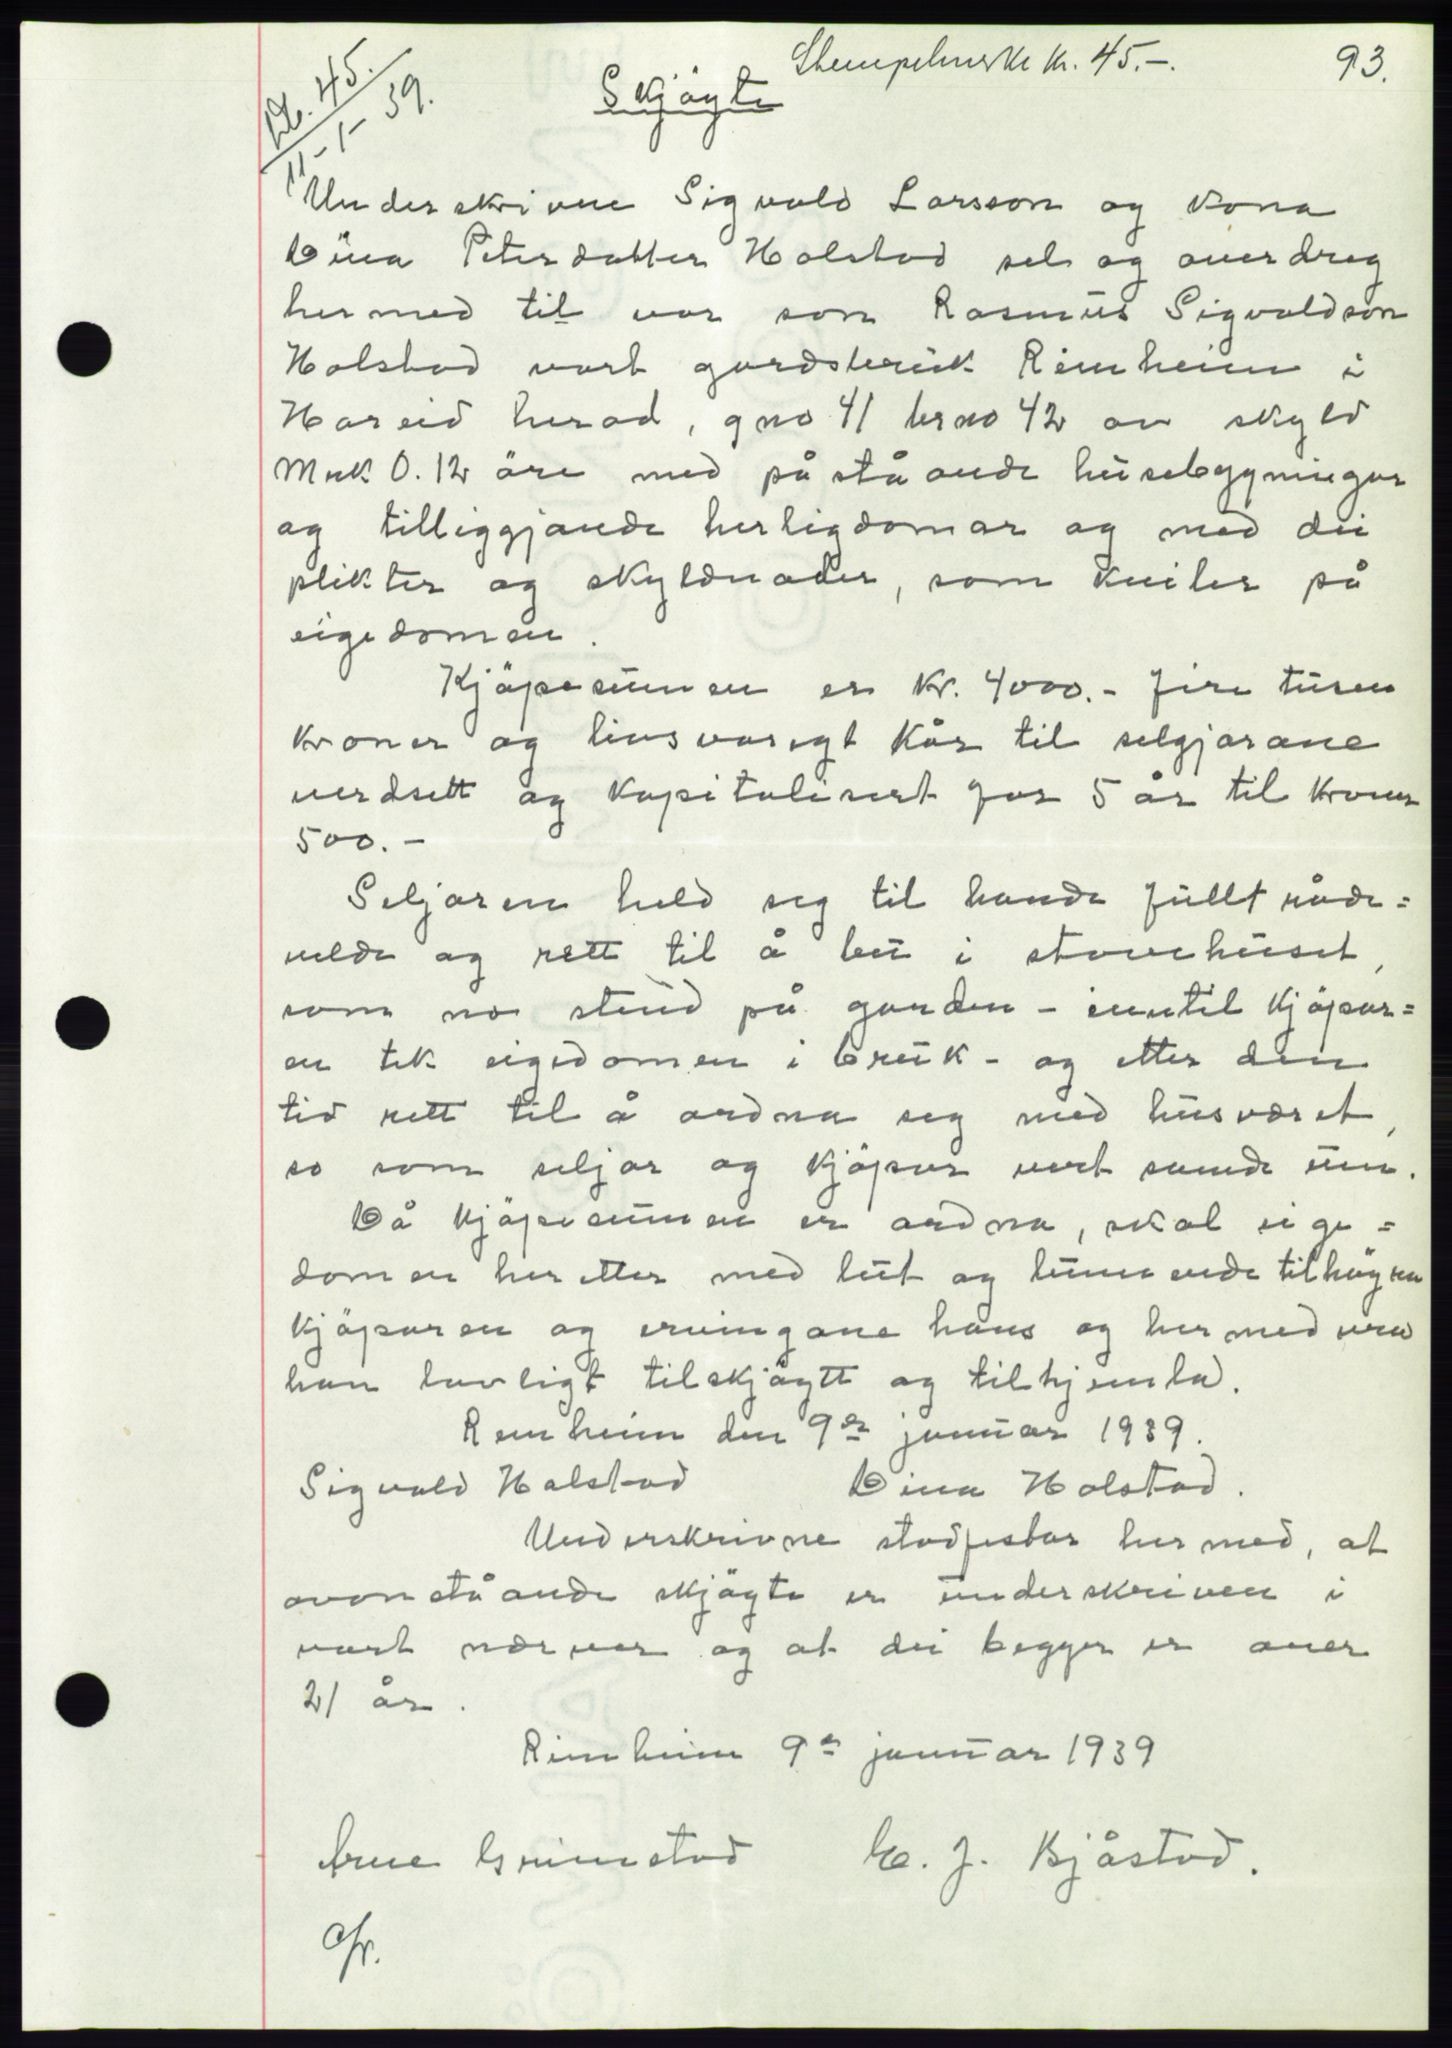 Stempelmerke kr. 45.-.
93.
Db. 45.
11-1-39.
Skjöyte
Underskrivne Sigvald Larsson og kona
Dina Petersdatter Holstad sel og overdreg
hermed til vor son Rasmus Sigvaldson
Holstad vort gardsbruk Reimheim i
Hareid herad, gno 41 brno 42 av skyld
Mrk 0.12 öre med påståande husebygningar
og tilliggjande herligdomar og med dei
plikter og skyldnader, som kviler på
eigedomen.
Kjöpesummen er kr. 4000.- fire tusen
kroner og livsvarigt kår til selgjarane
verdsett og kapitalisert for 5 år til kroner
500.-
Seljaren held seg til hande fullt råde=
velde og rett til å bu i stovehuset,
som no stend på garden - inntil kjöpar=
en tek eigedomen i bruk - og etter den
tid rett til å ordna seg med husværet,
so som seljar og kjöpar vert samde um.
Då kjöpesummen er ordna, skal eige=
domen heretter med lut og lunnende tilhöyra
kjöparen og ervingane hans og hermed vera
han lovligt tilskjöytt og tilhjemla.
Reimheim den 9de januar 1939.
Sigvald Holstad Dina Holstad.
Underskrivne stadfestar hermed, at
ovanståande skjöyte er underskriven i
vort nærver og at dei begge er over
21 år.
Reimheim 9de januar 1939
Arne Grimstad E. J. Kjåstad.
Afr.